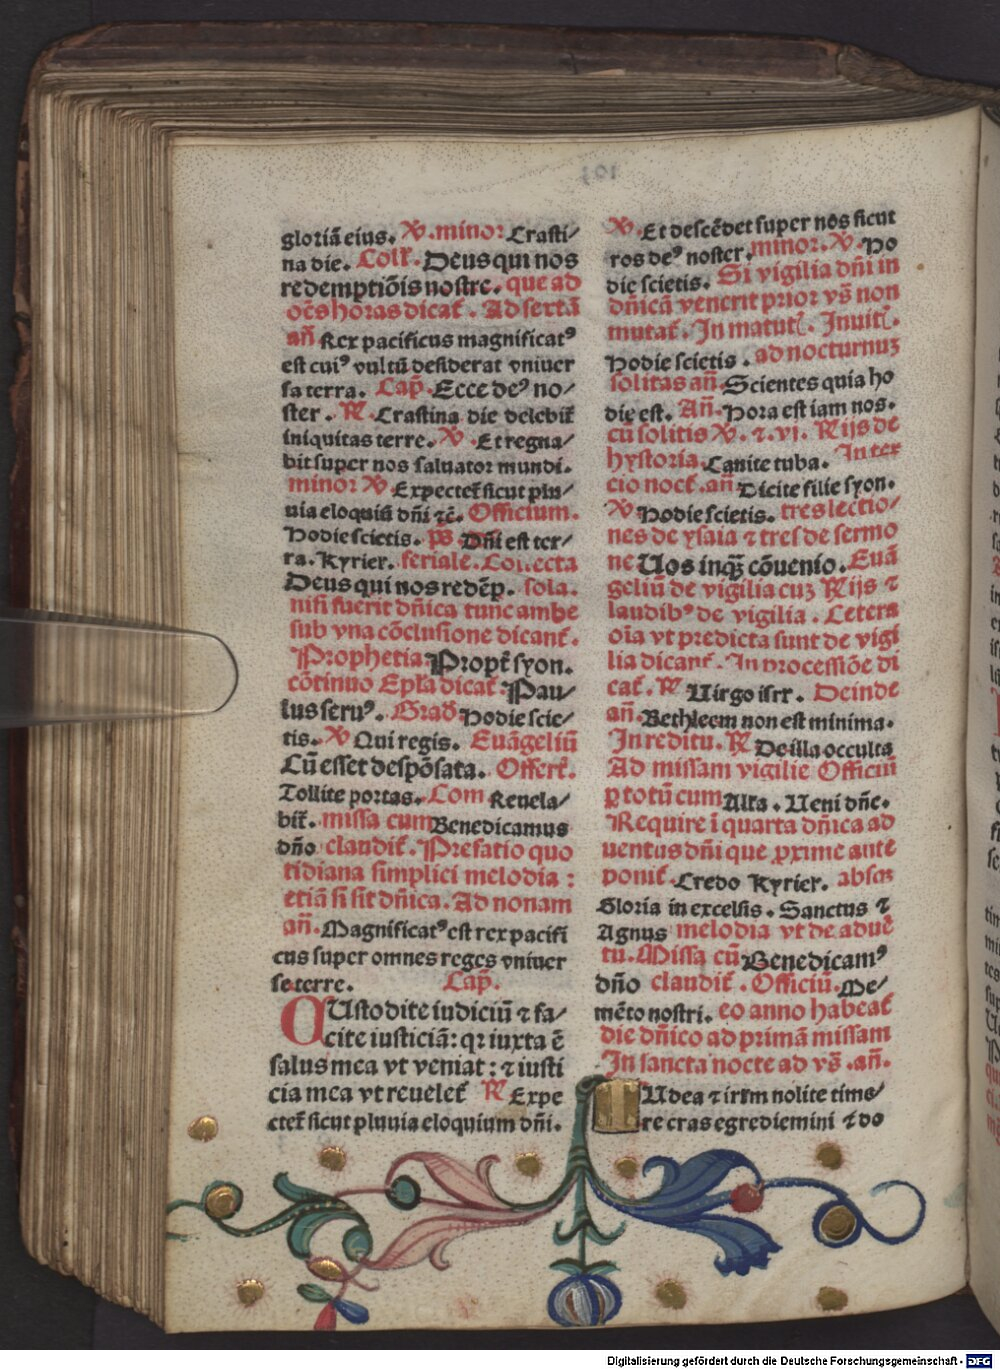 gloriã eius. ꝟ. minor Crasti/
na die. Coll̃. Deus qui nos
redemptiõis nostre. que ad
oẽs horas dicat̃. Ad sextã
añ Rex pacificus magnificatꝰ
est cuiꝰ vultũ desiderat vniuer
sa terra. Cap̃. Ecce deꝰ no/
ster. R̃. Crastina die delebit̃
iniquitas terre. ꝟ. Et regna/
bit super nos saluator mundi.
minor ꝟ Expectet̃ sicut plu/
uia eloquiũ dñi ⁊c̃. Officium.
Hodie scietis. p̃s. Dñi est ter/
ra. Kyrieł. feriale. Collecta
Deus qui nos redẽp. sola.
nisi fuerit dñica tunc ambe
sub vna cõclusione dicant̃.
Prophetia Propt̃ syon.
cõtinuo Epl̃a dicat̃. Pau/
lus seruꝰ. Grad̃ Hodie scie/
tis. ꝟ Qui regis. Euãgeliũ
Cũ esset despõsata. Offert̃.
Tollite portas. Com Reuela/
bit̃. missa cum Benedicamus
dño claudit̃. Prefatio quo
tidiana simplici melodia:
etiã si sit dñica. Ad nonam
añ. Magnificatꝰ est rex pacifi
cus super omnes reges vniuer
se terre. Cap̃.
CUstodite iudiciũ ⁊ fa/
cite iusticiã: qꝛ iuxta ẽ
salus mea vt veniat: ⁊ iusti
cia mea vt reuelet̃ R̃ Expe
ctet̃ sicut pluuia eloquium dñi.
ꝟ. Et descẽdet super nos sicut
ros deꝰ noster. minor. ꝟ. Ho
die scietis. Si vigilia dñi in
dñicã venerit prior vs̃ non
mutat̃. In matut̃. Inuit̃.
Hodie scietis. ad nocturnuꝫ
solitas añ. Scientes quia ho
die est. Añ. Hora est iam nos.
cũ solitis ꝟ. ⁊. vi. R̃ijs de
hystoria. Canite tuba. In ter
cio noct̃. añ Dicite filie syon.
ꝟ Hodie scietis. tres lectio/
nes de ysaia ⁊ tres de sermo
ne Uos inqꝫ cõuenio. Euã
geliũ de vigilia cuꝫ R̃ijs ⁊
laudibꝰ de vigilia. Cetera
oĩa vt predicta sunt de vigi
lia dicant̃. In processiõe di
cat̃. R̃ Uirgo isrł. Deinde
añ. Bethleem non est minima.
In reditu. R̃ De illa occulta
Ad missam vigilie Officiũ
ꝑ totũ cum Alľa. Ueni dñe.
Require ĩ quarta dñica ad
uentus dñi que ꝓxime ante
ponit̃. Credo Kyrieł. absqꝫ
Gloria in excelsis. Sanctus ⁊
Agnus melodia vt de aduẽ
tu. Missa cũ Benedicamꝰ
dño claudit̃. Officiũ. Me/
mẽto nostri. eo anno habeat̃
die dñico ad primã missam
In sancta nocte ad vs̃. añ.
IUdea ⁊ irl̃m nolite time/
re cras egrediemini ⁊ do
Digitalisierung gefördert durch die Deutsche Forschungsgemeinschaft - DFG